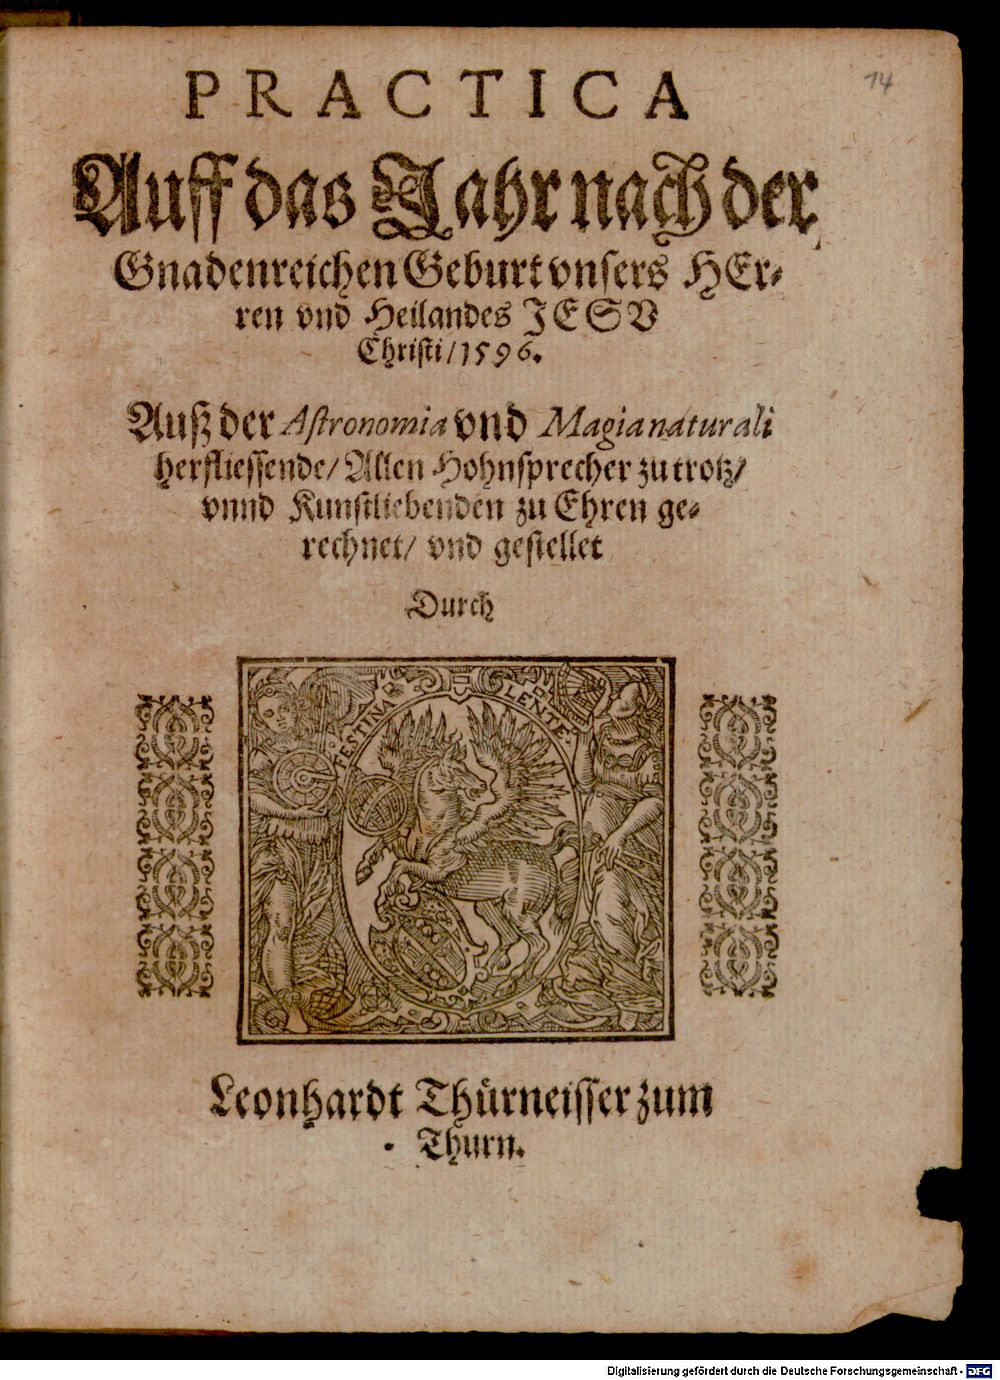 14
PRACTICA
Auff das Jahr nach der
Gnadenreichen Geburt vnsers HEr-
ren vnd Heilandes JESV
Christi/1596.
Auß der Astronomia vnd Magia naturali
herfliessende/ Allen Hohnsprecher zu trotz/
vnnd Kunstliebenden zu Ehren ge-
rechnet/ vnd gestellet
Durch
FESTINA LENTE.
Leonhardt Thürneisser zum
Thurn.
Digitalisierung gefördert durch die Deutsche Forschungsgemeinschaft - DFG